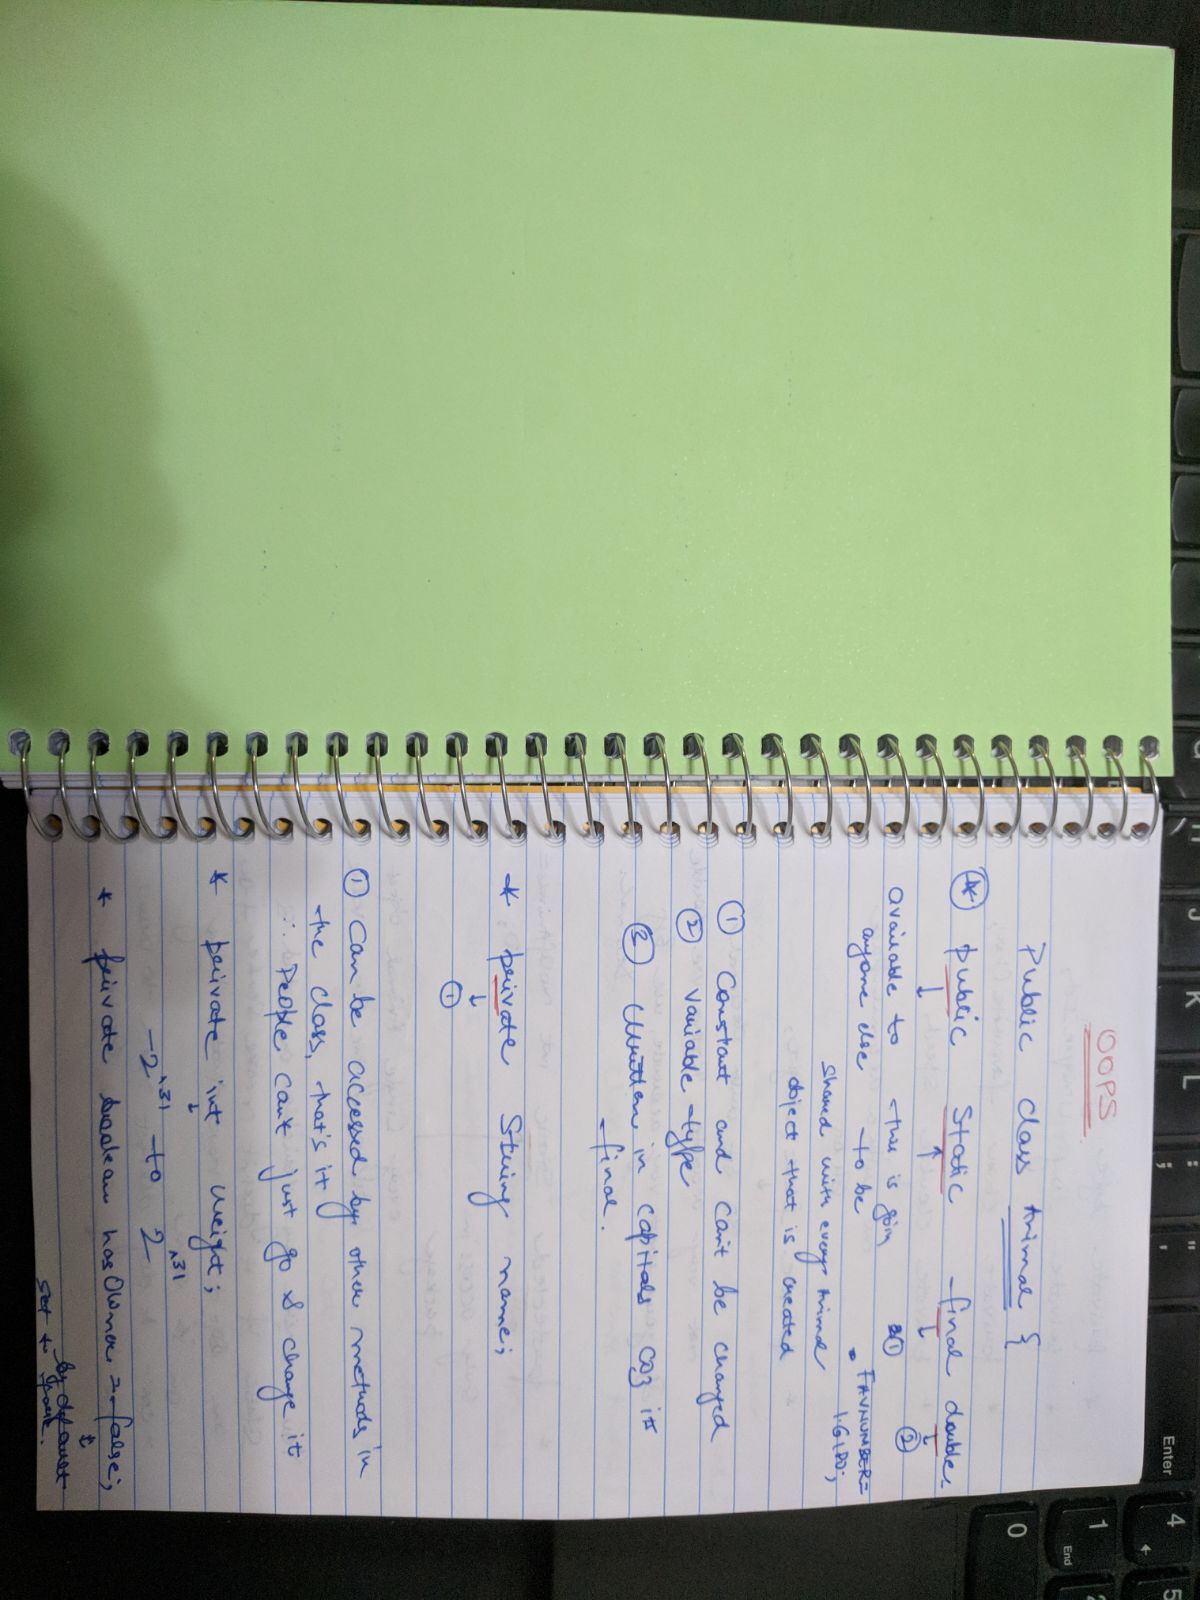 OOPS
Public class Animal {
* Public Static final double
available to this is goin ① ②
anyone else to be • FAVNUMBER=
shared with every Animal 1.6180;
object that is created
① Constant and can't be changed
② variable type
③ Written in capitals coz it's
final.
* private String name;
①
① Can be accessed by other methods in
the class, that's it
∴ People can't just go & change it
* private int weight;
-2^31 to 2^31
* private boolean hasOwner = false;
by default
set to
Enter
K
L
;
:
'
"
0
1
End
4
5
2